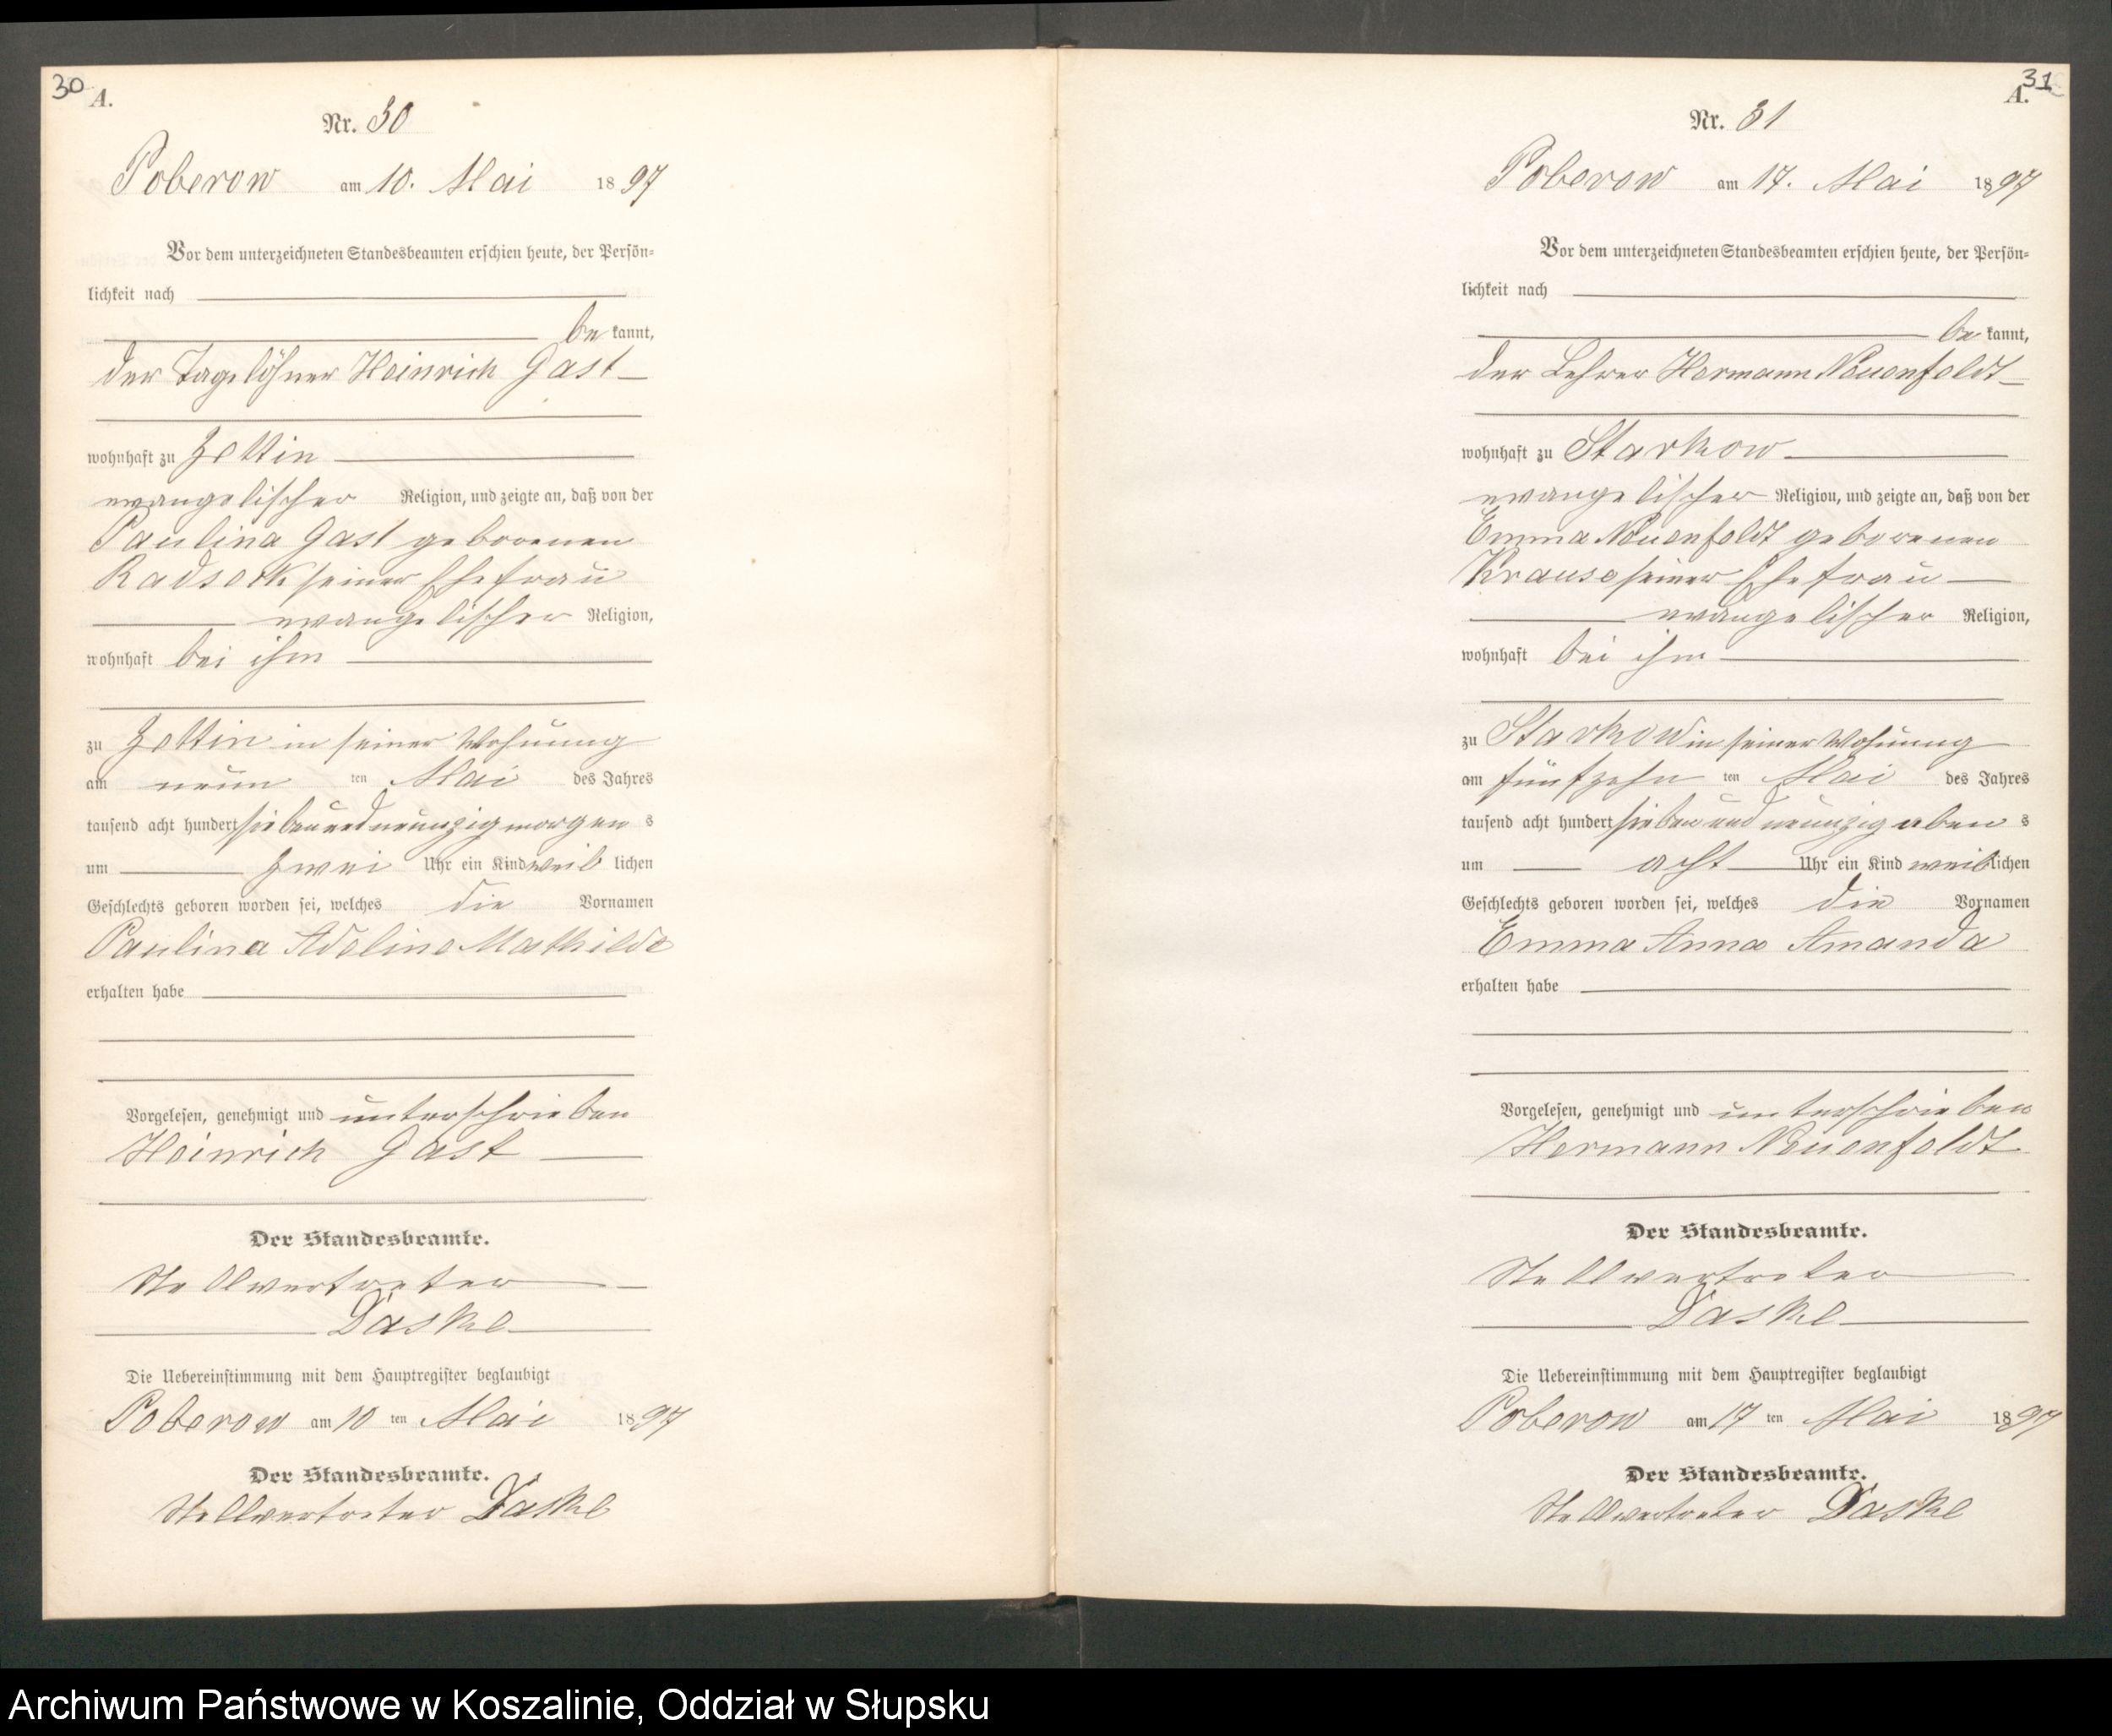 30
A.
Nr. 30
Poberow am 10. Mai 1897
Vor dem unterzeichneten Standesbeamten erschien heute, der Persön-
lichkeit nach
be kannt,
der Tagelöhner Heinrich Gast
wohnhaft zu Zettin
evangelischer Religion, und zeigte an, daß von der
Paulina Gast geborenen
Radseck seiner Ehefrau
evangelischer Religion,
wohnhaft bei ihm
zu Zettin in seiner Wohnung
am neun ten Mai des Jahres
tausend acht hundert siebenundneunzig morgen s
um zwei Uhr ein Kind weib lichen
Geschlechts geboren worden sei, welches die Vornamen
Paulina Adeline Mathilde
erhalten habe
Vorgelesen, genehmigt und unterschrieben
Heinrich Gast
Der Standesbeamte.
Stellvertreter
Daske
Die Uebereinstimmung mit dem Hauptregister beglaubigt
Poberow am 10 ten Mai 1897
Der Standesbeamte.
Stellvertreter Daske
31
A.
Nr. 31
Poberow am 17. Mai 1897
Vor dem unterzeichneten Standesbeamten erschien heute, der Persön-
lichkeit nach
be kannt,
der Lehrer Hermann Neuenfeldt
wohnhaft zu Starkow
evangelischer Religion, und zeigte an, daß von der
Emma Neuenfeldt geborenen
Krause seiner Ehefrau
evangelischer Religion,
wohnhaft bei ihm
zu Starkow in seiner Wohnung
am fünfzehn ten Mai des Jahres
tausend acht hundert siebenundneunzig aben s
um acht Uhr ein Kind weiblichen
Geschlechts geboren worden sei, welches die Vornamen
Emma Anna Amanda
erhalten habe
Vorgelesen, genehmigt und unterschrieben
Hermann Neuenfeldt
Der Standesbeamte.
Stellvertreter
Daske
Die Uebereinstimmung mit dem Hauptregister beglaubigt
Poberow am 17 ten Mai 1897
Der Standesbeamte.
Stellvertreter Daske
Archiwum Państwowe w Koszalinie, Oddział w Słupsku